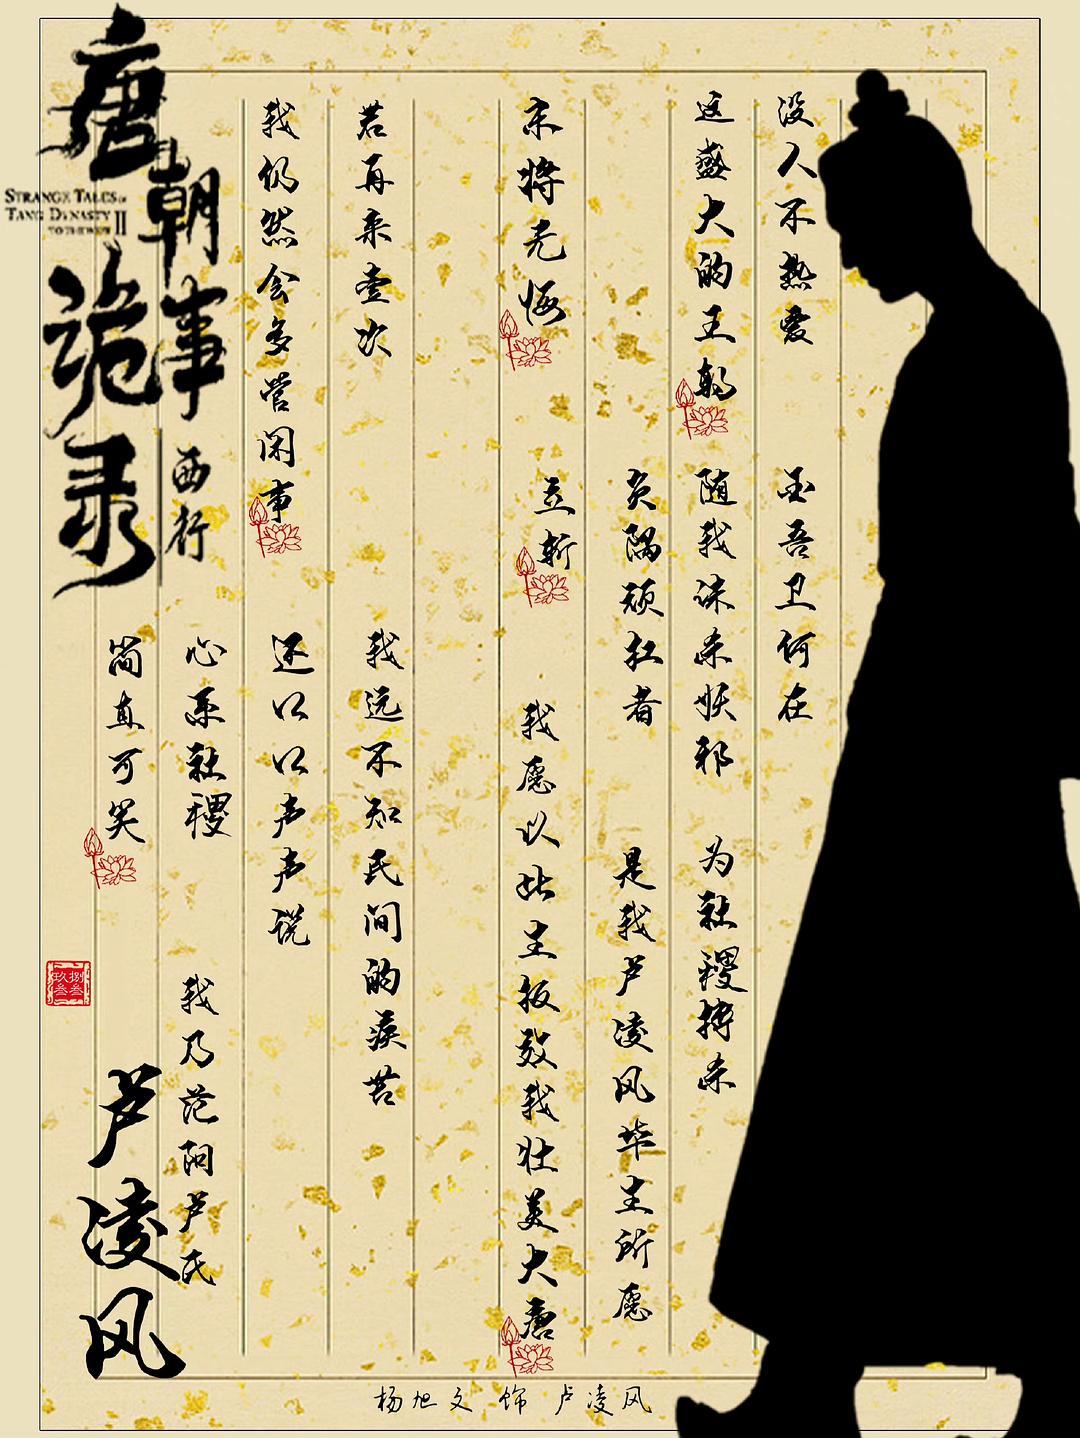 唐朝诡事录
西行
STRANGE TALES OF
TANG DYNASTY II
TO THE WEST
没人不热爱
金吾卫何在
这盛大的王朝
随我诛杀妖邪
为社稷搏杀
负隅顽抗者
是我卢凌风毕生所愿
亦将无悔
立斩
我愿以此生报效我壮美大唐
若再来壹次
我远不知民间的疾苦
我仍然会多管闲事
还口口声声说
心系社稷
我乃范阳卢氏
简直可笑
卢凌风
捌叁玖叁
杨旭文 饰 卢凌风